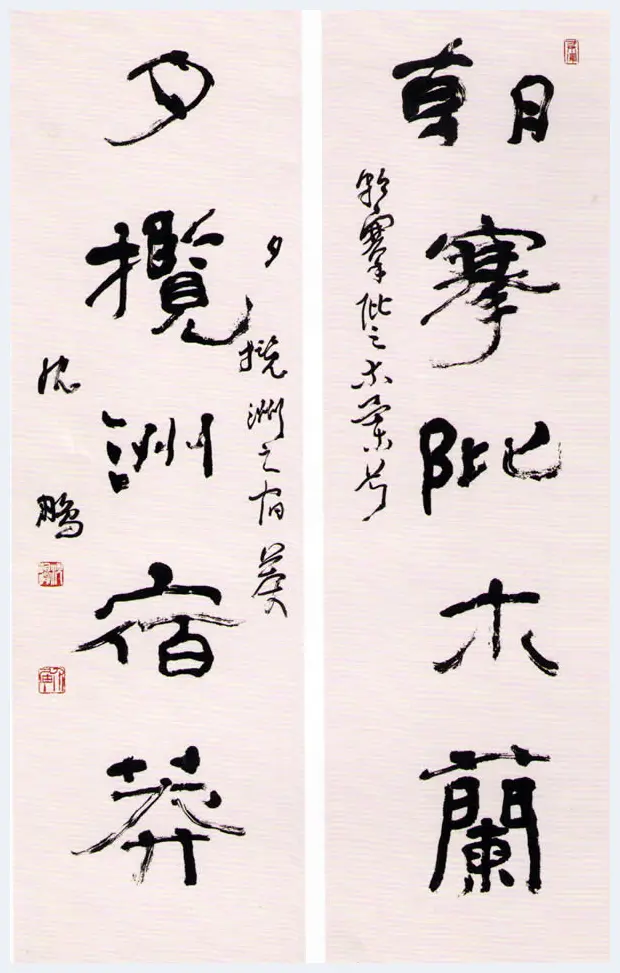 朝搴阰木蘭
朝搴阰之木蘭兮
夕攬洲宿莽
夕揽洲之宿莽
沈鹏